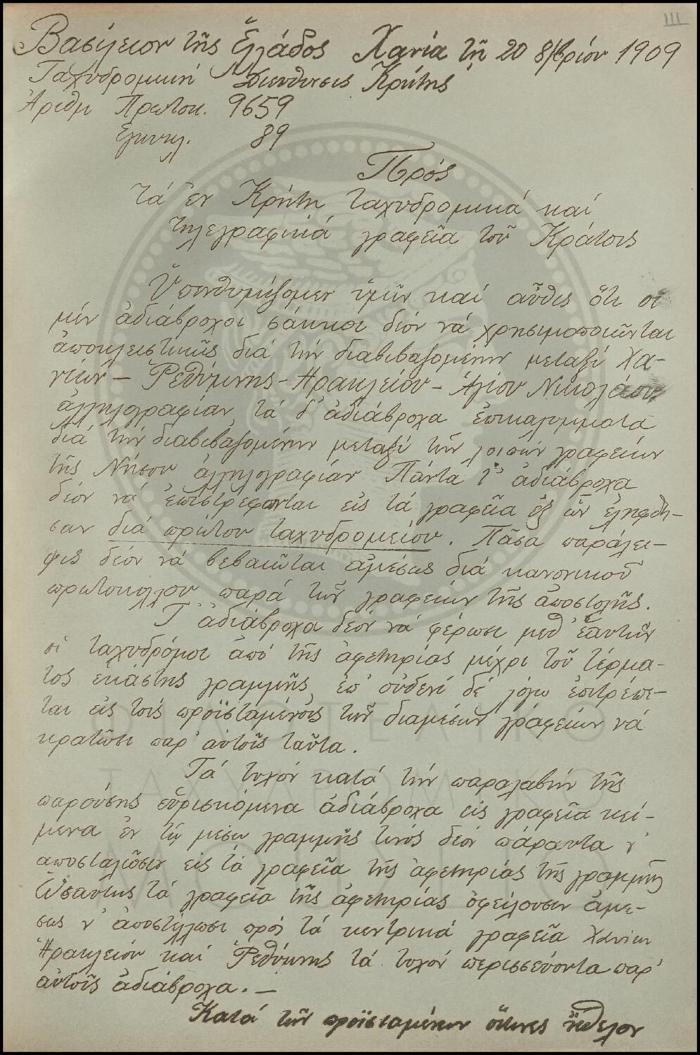 III
Βασίλειον τῆς Ἑλλάδος Χανία τῇ 20 8/βρίου 1909
Ταχυδρομική Διεύθυνσις Κρήτης
Ἀριθμ Πρωτοκ. 9659
Ἐγκυκλ. 89
Πρός
τά ἐν Κρήτῃ ταχυδρομικά καί
τηλεγραφικά γραφεῖα τοῦ Κράτους
Ὑπενθυμίζομεν ὑμῖν καί αὖθις ὅτι οἱ
μέν ἀδιάβροχοι σάκκοι δέον νά χρησιμοποιῶνται
ἀποκλειστικῶς διά τήν διαβιβαζομένην μεταξύ Χα-
νίων – Ρεθύμνης – Ἡρακλείου – Ἁγίου Νικολάου
ἀλληλογραφίαν τά δ' ἀδιάβροχα ἐπικαλύμματα
διά τήν διαβιβαζομένην μεταξύ τῶν λοιπῶν γραφείων
τῆς Νήσου ἀλληλογραφίαν Πάντα τ' ἀδιάβροχα
δέον νά ἐπιστρέφονται εἰς τά γραφεῖα ἐξ ὧν ἐλήφθη-
σαν διά πρώτου ταχυδρομείου. Πᾶσα παράλει-
ψις δέον νά βεβαιῶται ἀμέσως διά κανονικοῦ
πρωτοκόλλου παρά τῶν γραφείων τῆς ἀποστολῆς.
Τ' ἀδιάβροχα δέον νά φέρωσι μεθ' ἑαυτῶν
οἱ ταχυδρόμοι ἀπό τῆς ἀφετηρίας μέχρι τοῦ τέρμα-
τος ἑκάστης γραμμῆς ἐπ' οὐδενί δέ λόγῳ ἐπιτρέπε-
ται εἰς τούς προϊσταμένους τῶν διαμέσων γραφείων νά
κρατῶσι παρ' αὐτοῖς ταῦτα.
Τά τυχόν κατά τήν παραλαβήν τῆς
παρούσης εὑρισκόμενα ἀδιάβροχα εἰς γραφεῖα κεί-
μενα ἐν τῷ μέσῳ γραμμῆς τινός δέον πάραυτα ν'
ἀποσταλῶσιν εἰς τά γραφεῖα τῆς ἀφετηρίας τῆς γραμμῆς
Ὡσαύτως τά γραφεῖα τῆς ἀφετηρίας ὀφείλουσιν ἀμέ-
σως ν' ἀποστείλωσι πρός τά κεντρικά γραφεῖα Χανίων
Ἡρακλείου καί Ρεθύμνης τά τυχόν περισσεύοντα παρ'
αὐτοῖς ἀδιάβροχα. –
Κατά τῶν προϊσταμένων οἵτινες ἤθελον
ΦΙΛΟΤΕΛΙΚΟ
ΤΑΧΥΔΡΟΜΙΚΟ
ΜΟΥΣΕΙΟ